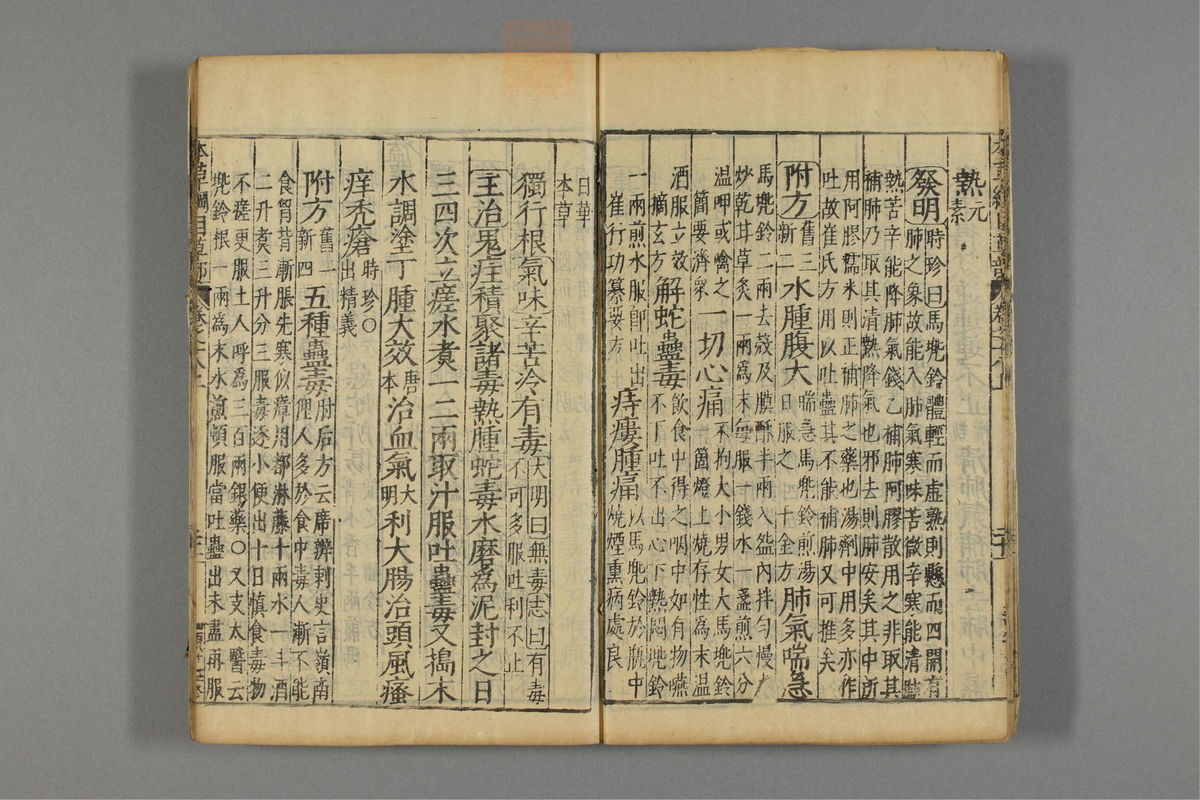 熱元素
發明時珍曰馬兜鈴體輕而虛熟則懸而四開有
肺之象故能入肺氣寒味苦微辛寒能清肺
熱苦辛能降肺氣錢乙補肺阿膠散用之非取其
補肺乃取其清熱降氣也邪去則肺安矣其中所
用阿膠糯米則正補肺之藥也湯劑中用多亦作
吐故崔氏方用以吐蠱其不能補肺又可推矣
附方舊三新二水腫腹大喘急馬兜鈴煎湯日服之千金方肺氣喘急
馬兜鈴二兩去殼及膜酥半兩入盌內拌勻慢火
炒乾甘草炙一兩爲末每服一錢水一盞煎六分
溫呷或噙之簡要濟衆一切心痛不拘大小男女大馬兜鈴一箇燈上燒存性爲末溫
酒服立效摘玄方解蛇蠱毒飲食中得之咽中如有物嚥不下吐不出心下熱悶兜鈴
一兩煎水服卽吐出崔行功纂要方痔瘻腫痛以馬兜鈴於瓶中燒煙熏病處良
日華本草
獨行根氣味辛苦冷有毒大明曰無毒志曰有毒不可多服吐利不止
主治鬼疰積聚諸毒熱腫蛇毒水磨爲泥封之日
三四次立瘥水煮一二兩取汁服吐蠱毒又搗末
水調塗丁腫大效唐本治血氣大明利大腸治頭風瘙
痒禿瘡時珍○出精義
附方舊一新四五種蠱毒肘后方云席辨刺史言嶺南俚人多於食中毒人漸不能
食胷背漸脹先寒似瘴用都淋藤十兩水一斗酒
二升煮三升分三服毒逐小便出十日慎食毒物
不瘥更服土人呼爲三百兩銀藥○又支太醫云
兜鈴根一兩爲末水煎頓服當吐蠱出未盡再服
本草綱目草部